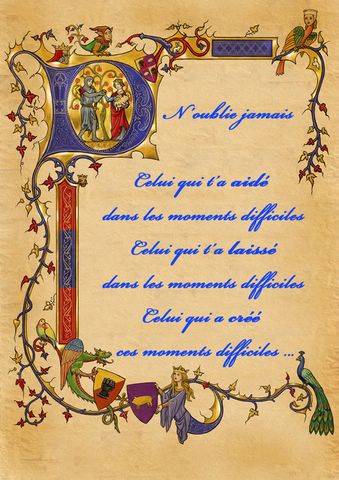 N'oublie jamais
Celui qui t'a aidé
dans les moments difficiles
Celui qui t'a laissé
dans les moments difficiles
Celui qui a créé
ces moments difficiles ...